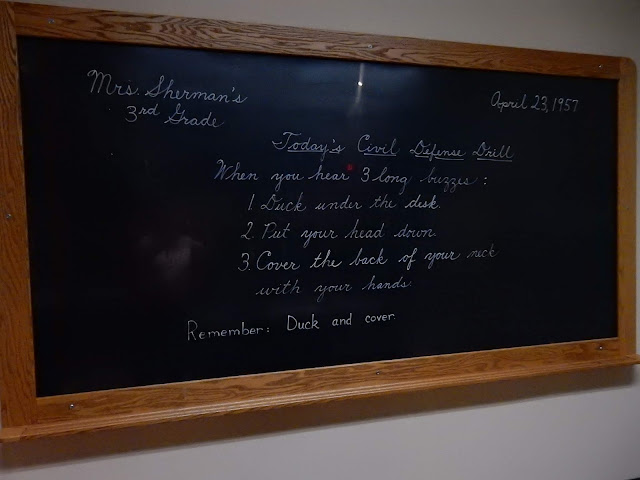 Mrs. Sherman's
3rd Grade
April 23, 1957
Today's Civil Defense Drill
When you hear 3 long buzzes:
1. Duck under the desk.
2. Put your head down.
3. Cover the back of your neck
with your hands.
Remember: Duck and cover.